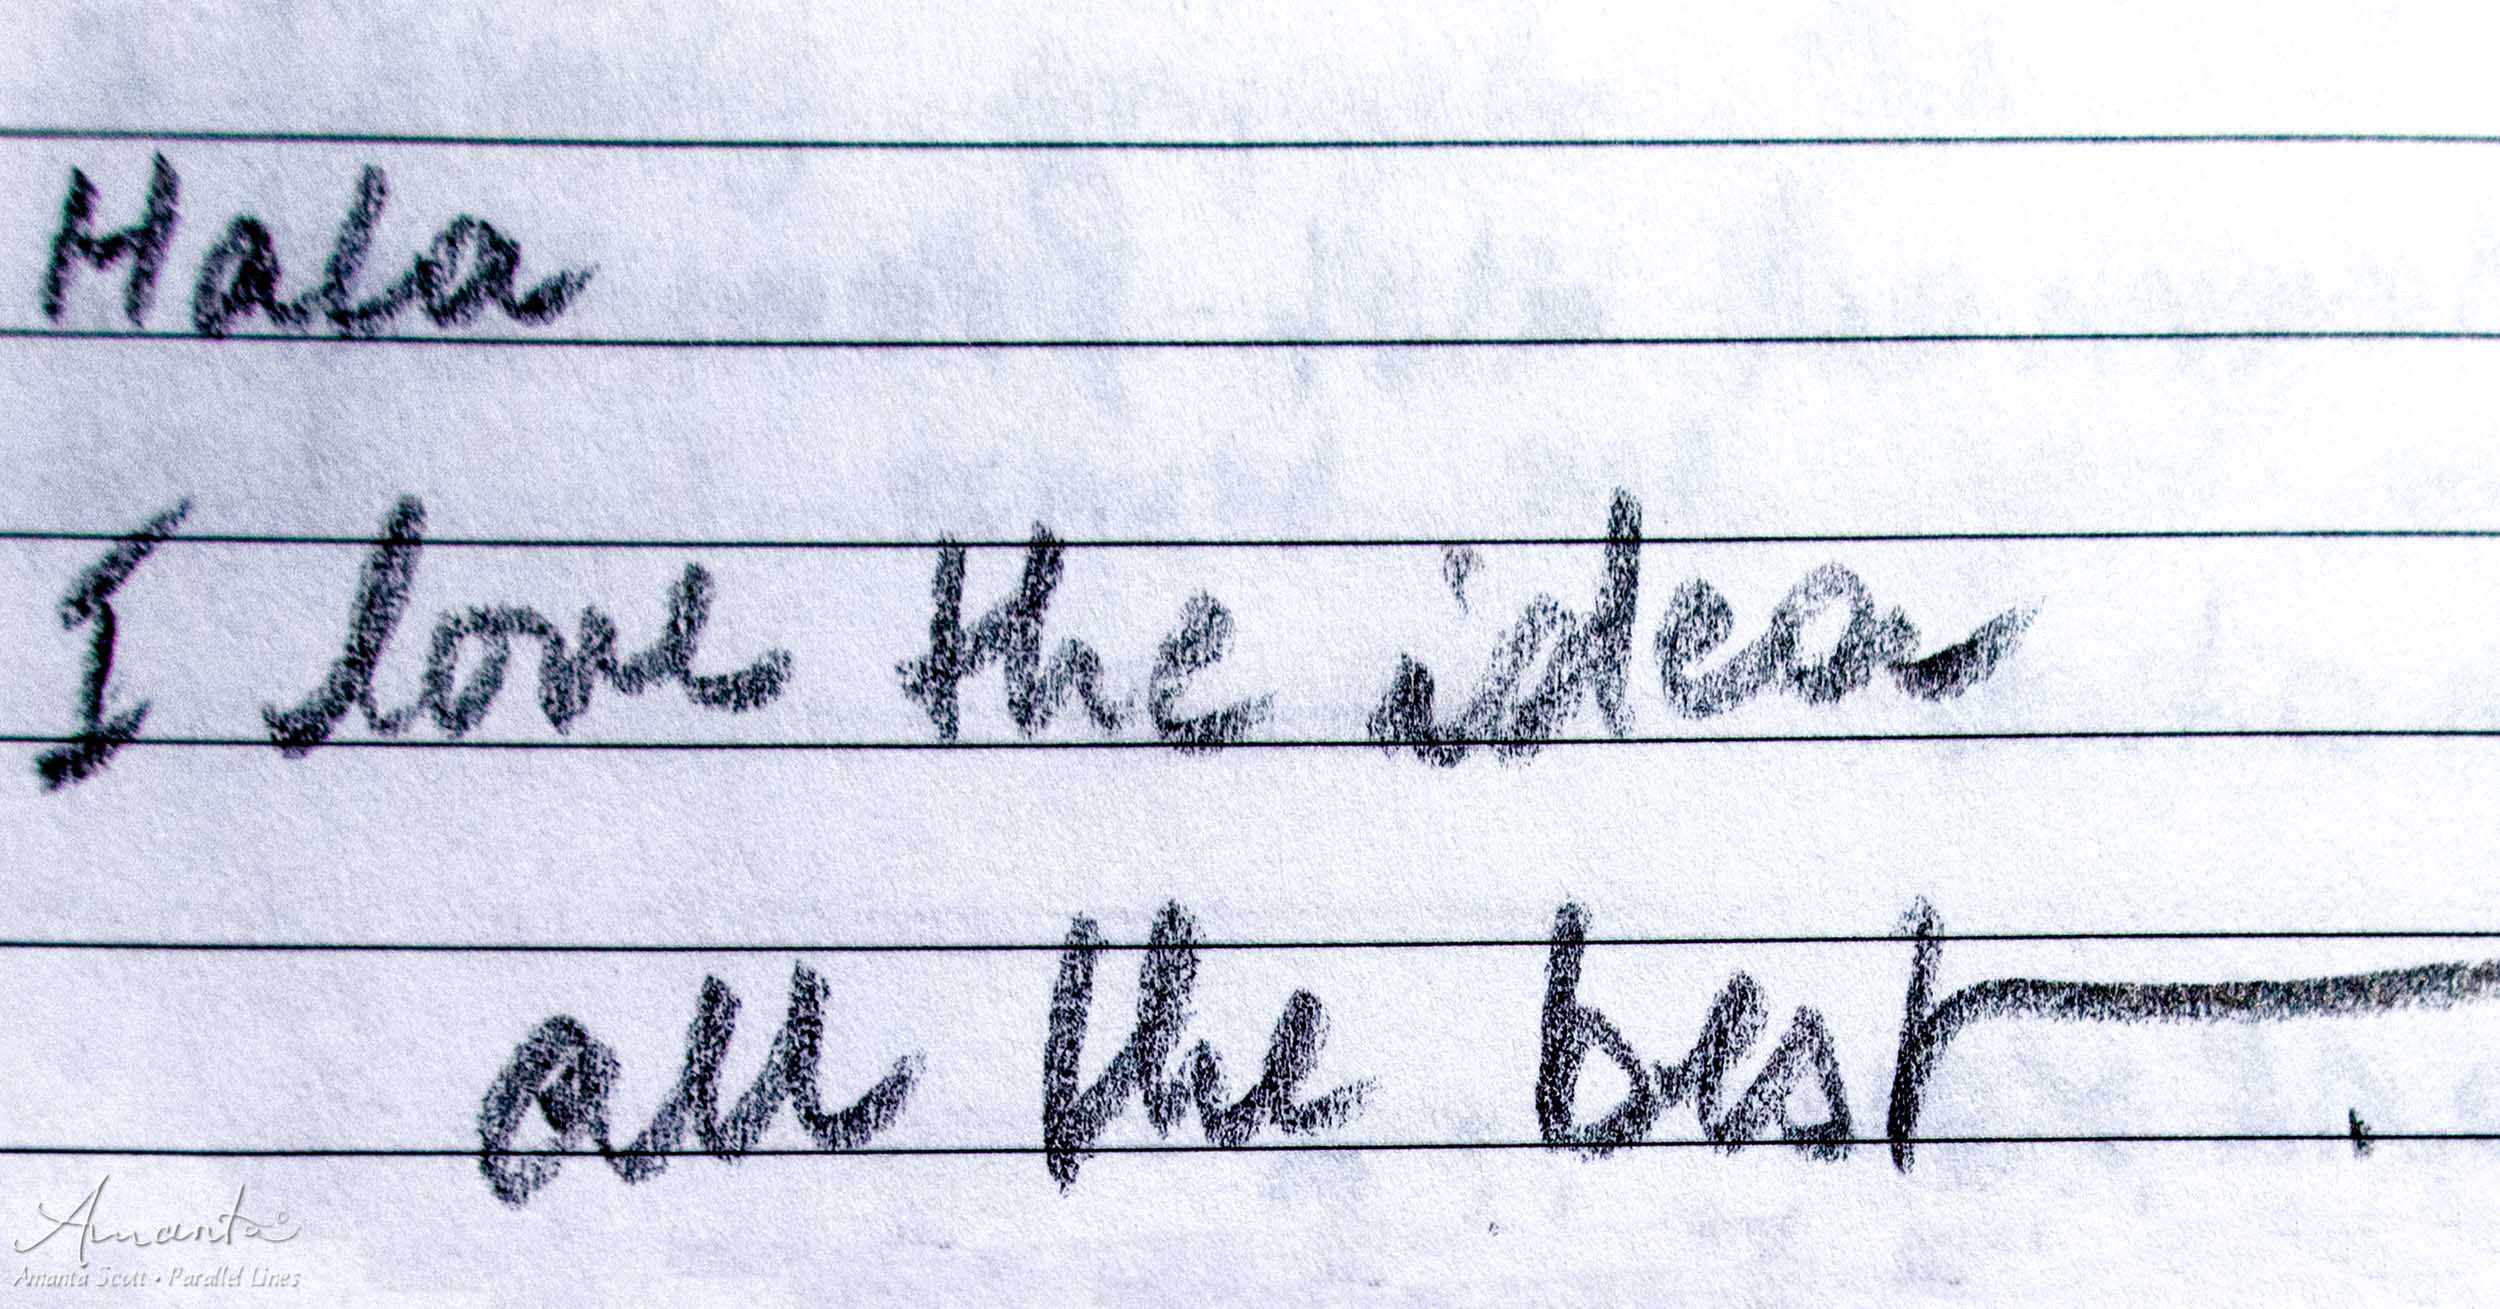 Hala
I love the idea
all the best
Amanta
Amanta Scott • Parallel Lines